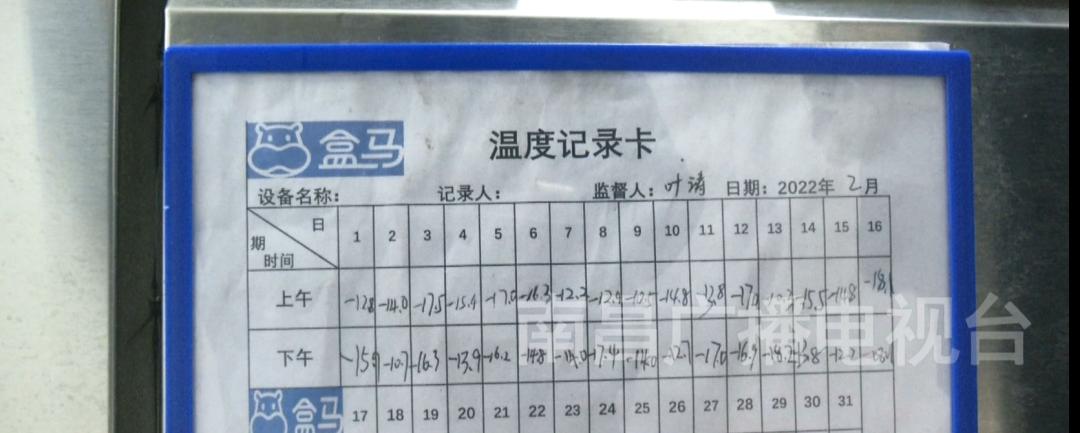 盒马 温度记录卡
设备名称: 记录人: 监督人: 叶清 日期: 2022年 2月
日期 时间 1 2 3 4 5 6 7 8 9 10 11 12 13 14 15 16
上午 -12.8 -14.0 -17.5 -15.4 -17.0 -16.3 -12.2 -12.9 -14.8 -13.8 -17.0 -15.5 -14.8 -18.1
下午 -15.9 -10.7 -16.3 -13.9 -16.2 -14.8 -17.4 -14.0 -12.7 -17.0 -16.9 -18.2 -13.8 -12.2
南昌广播电视台
盒马 17 18 19 20 21 22 23 24 25 26 27 28 29 30 31